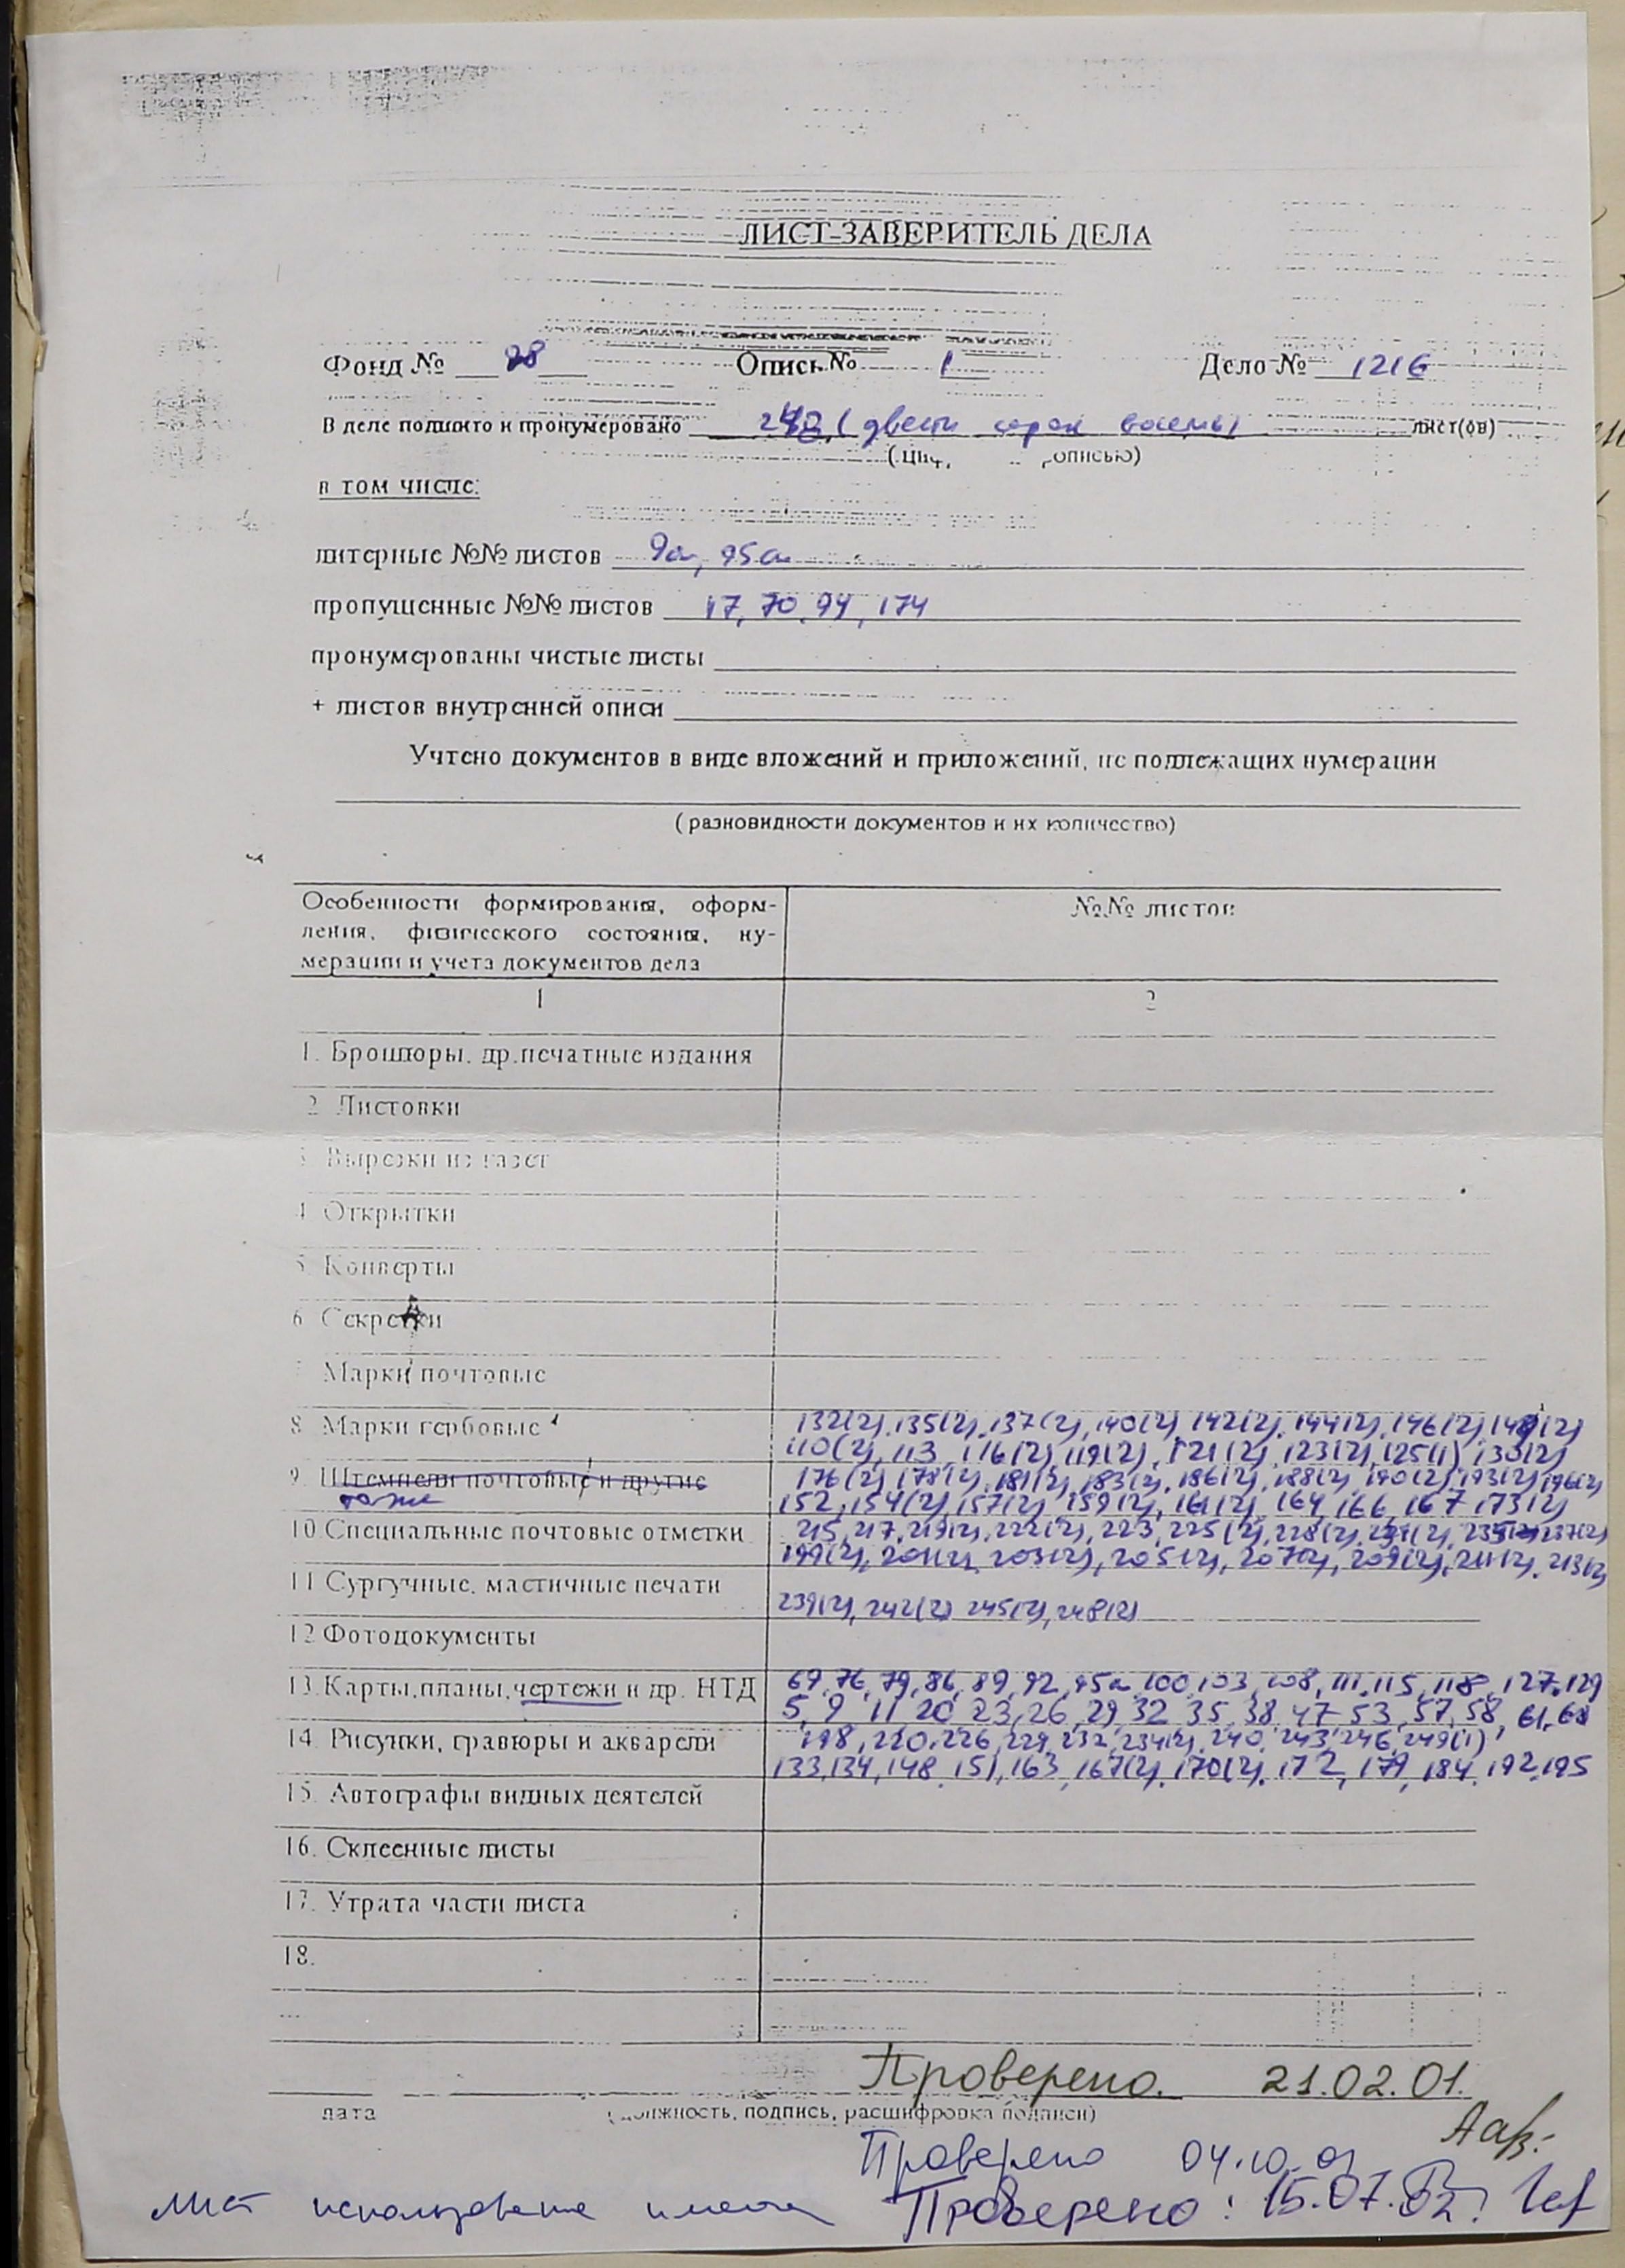 ЛИСТ-ЗАВЕРИТЕЛЬ ДЕЛА
Фонд № 28 Опись № 1 Дело № 1216
В деле подшито и пронумеровано 248 (двести сорок восемь) лист(ов)
в том числе:
литерные №№ листов 9а, 95а
пропущенные №№ листов 17, 70, 94, 174
пронумерованы чистые листы
+ листов внутренней описи
Учтено документов в виде вложений и приложений, не подлежащих нумерации
(разновидности документов и их количество)
Особенности формирования, оформ-
ления, физического состояния, ну-
мерации и учета документов дела
№№ листов
1 2
1. Брошюры, др.печатные издания
2 Листовки
3 Вырезки из газет
4 Открытки
5. Конверты
6 Секретки
Марки почтовые
8 Марки гербовые 132(2), 135(2), 137(2), 140(2), 142(2), 144(2), 146(2), 149(2)
110(2), 113, 116(2), 119(2), 121(2), 123(2), 125(1), 130(2)
9. Штемпели почтовые и другие 176(2), 178(2), 181(2), 183(2), 186(2), 188(2), 190(2), 193(2), 196(2)
также 152, 154(2), 157(2), 159(2), 161(2), 164, 166, 167, 173(2)
10.Специальные почтовые отметки 215, 217, 219(2), 222(2), 223, 225(2), 228(2), 231(2), 235(2), 237(2)
199(2), 201(2), 203(2), 205(2), 207(2), 209(2), 211(2), 213(2)
11 Сургучные, мастичные печати
239(2), 242(2), 245(2), 248(2)
12 Фотодокументы
13.Карты,планы,чертежи и др. НТД 69, 76, 79, 86, 89, 92, 95а, 100, 103, 108, 111, 115, 118, 127, 129
5, 9, 11, 20, 23, 26, 29, 32, 35, 38, 47, 53, 57, 58, 61, 68
14. Рисунки, гравюры и акварели 198, 220, 226, 229, 232, 234(2), 240, 243, 246, 249(1)
133, 134, 148, 151, 163, 167(2), 170(2), 172, 179, 184, 192, 195
15. Автографы видных деятелей
16. Склеенные листы
17. Утрата части листа
18.
Проверено. 21.02.01.
дата (должность, подпись, расшифровка подписи)
Проверено 04.10.01
Лист использования имеется Проверено: 15.07.02